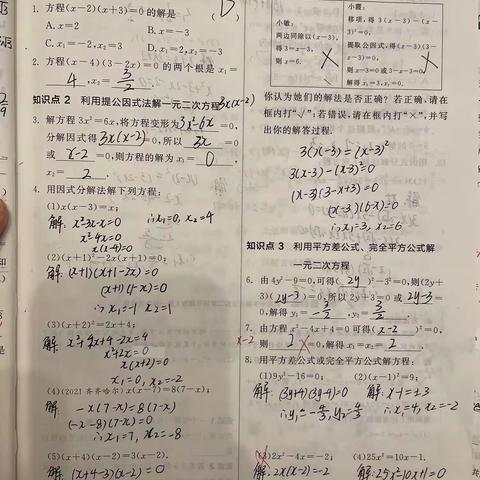 1. 方程(x-2)(x+3)=0 的解是 ( D )
A. x=2 B. x=-3
C. x₁=-2, x₂=3 D. x₁=2, x₂=-3
2. 方程(x-4)(3-2x)=0 的两个根是 x₁=
4 , x₂= 3/2 .
知识点 2 利用提公因式法解一元二次方程
3x(x-2)
3. 解方程 3x²=6x,将方程变形为 3x²-6x =0,
分解因式得 3x(x-2) =0,所以 3x =0
或 x-2 =0,则方程的解为 x₁= 0 ,
x₂= 2 .
4. 用因式分解法解下列方程:
(1)x(x-3)=x;
解: x²-3x-x=0 ∴x₁=0, x₂=4
x²-4x=0
x(x-4)=0
(2)(x+1)²-2x(x+1)=0;
解: (x+1)(x+1-2x)=0
(x+1)(1-x)=0
∴x₁=-1 x₂=1
(3)(x+2)²=2x+4;
解: x²+4x+4-2x=4
x²+2x=0
x(x+2)=0
x₁=0, x₂=-2
(4)(2021·齐齐哈尔)x(x-7)=8(7-x);
解: -x(7-x)=8(7-x)
(-x-8)(7-x)=0
∴x₁=7, x₂=-8
(5)(x+4)(x-2)=3(x-2).
解: (x+4-3)(x-2)=0
小敏:
两边同除以(x-3),
得 3=x-3,
则 x=6.
小霞:
移项,得 3(x-3)-(x-
3)²=0,
提取公因式,得(x-3)(3-
x-3)=0,
则 x-3=0 或 3-x-3=0,
解得 x₁=3, x₂=0.
你认为她们的解法是否正确?若正确,请在
框内打“√”;若错误,请在框内打“×”,并写
出你的解答过程.
3(x-3)=(x-3)²
3(x-3)-(x-3)²=0
(x-3)(3-x+3)=0
(x-3)(6-x)=0
∴x₁=3, x₂=6
知识点 3 利用平方差公式、完全平方公式解
一元二次方程
6. 由 4y²-9=0,可得( 2y )²-3²=0,则(2y+
3)( 2y-3 )=0,所以 2y+3=0 或 2y-3=
0,解得 y₁= -3/2 , y₂= 3/2 .
7. 由方程 x²-4x+4=0 可得( x-2 )²=0,
x-2
则 2 =0,解得 x₁=x₂= 2 .
8. 用平方差公式或完全平方公式解方程:
(1)9y²-16=0; (2)(x-1)²=9;
解: (3y+4)(3y-4)=0 解: x-1=±3
∴y₁=-4/3, y₂=4/3 ∴x₁=4, x₂=-2
(3)2x²-4x=-2; (4)25x²=10x-1.
解: 2x(x-2)=-2 解: 25x²-10x+1=0